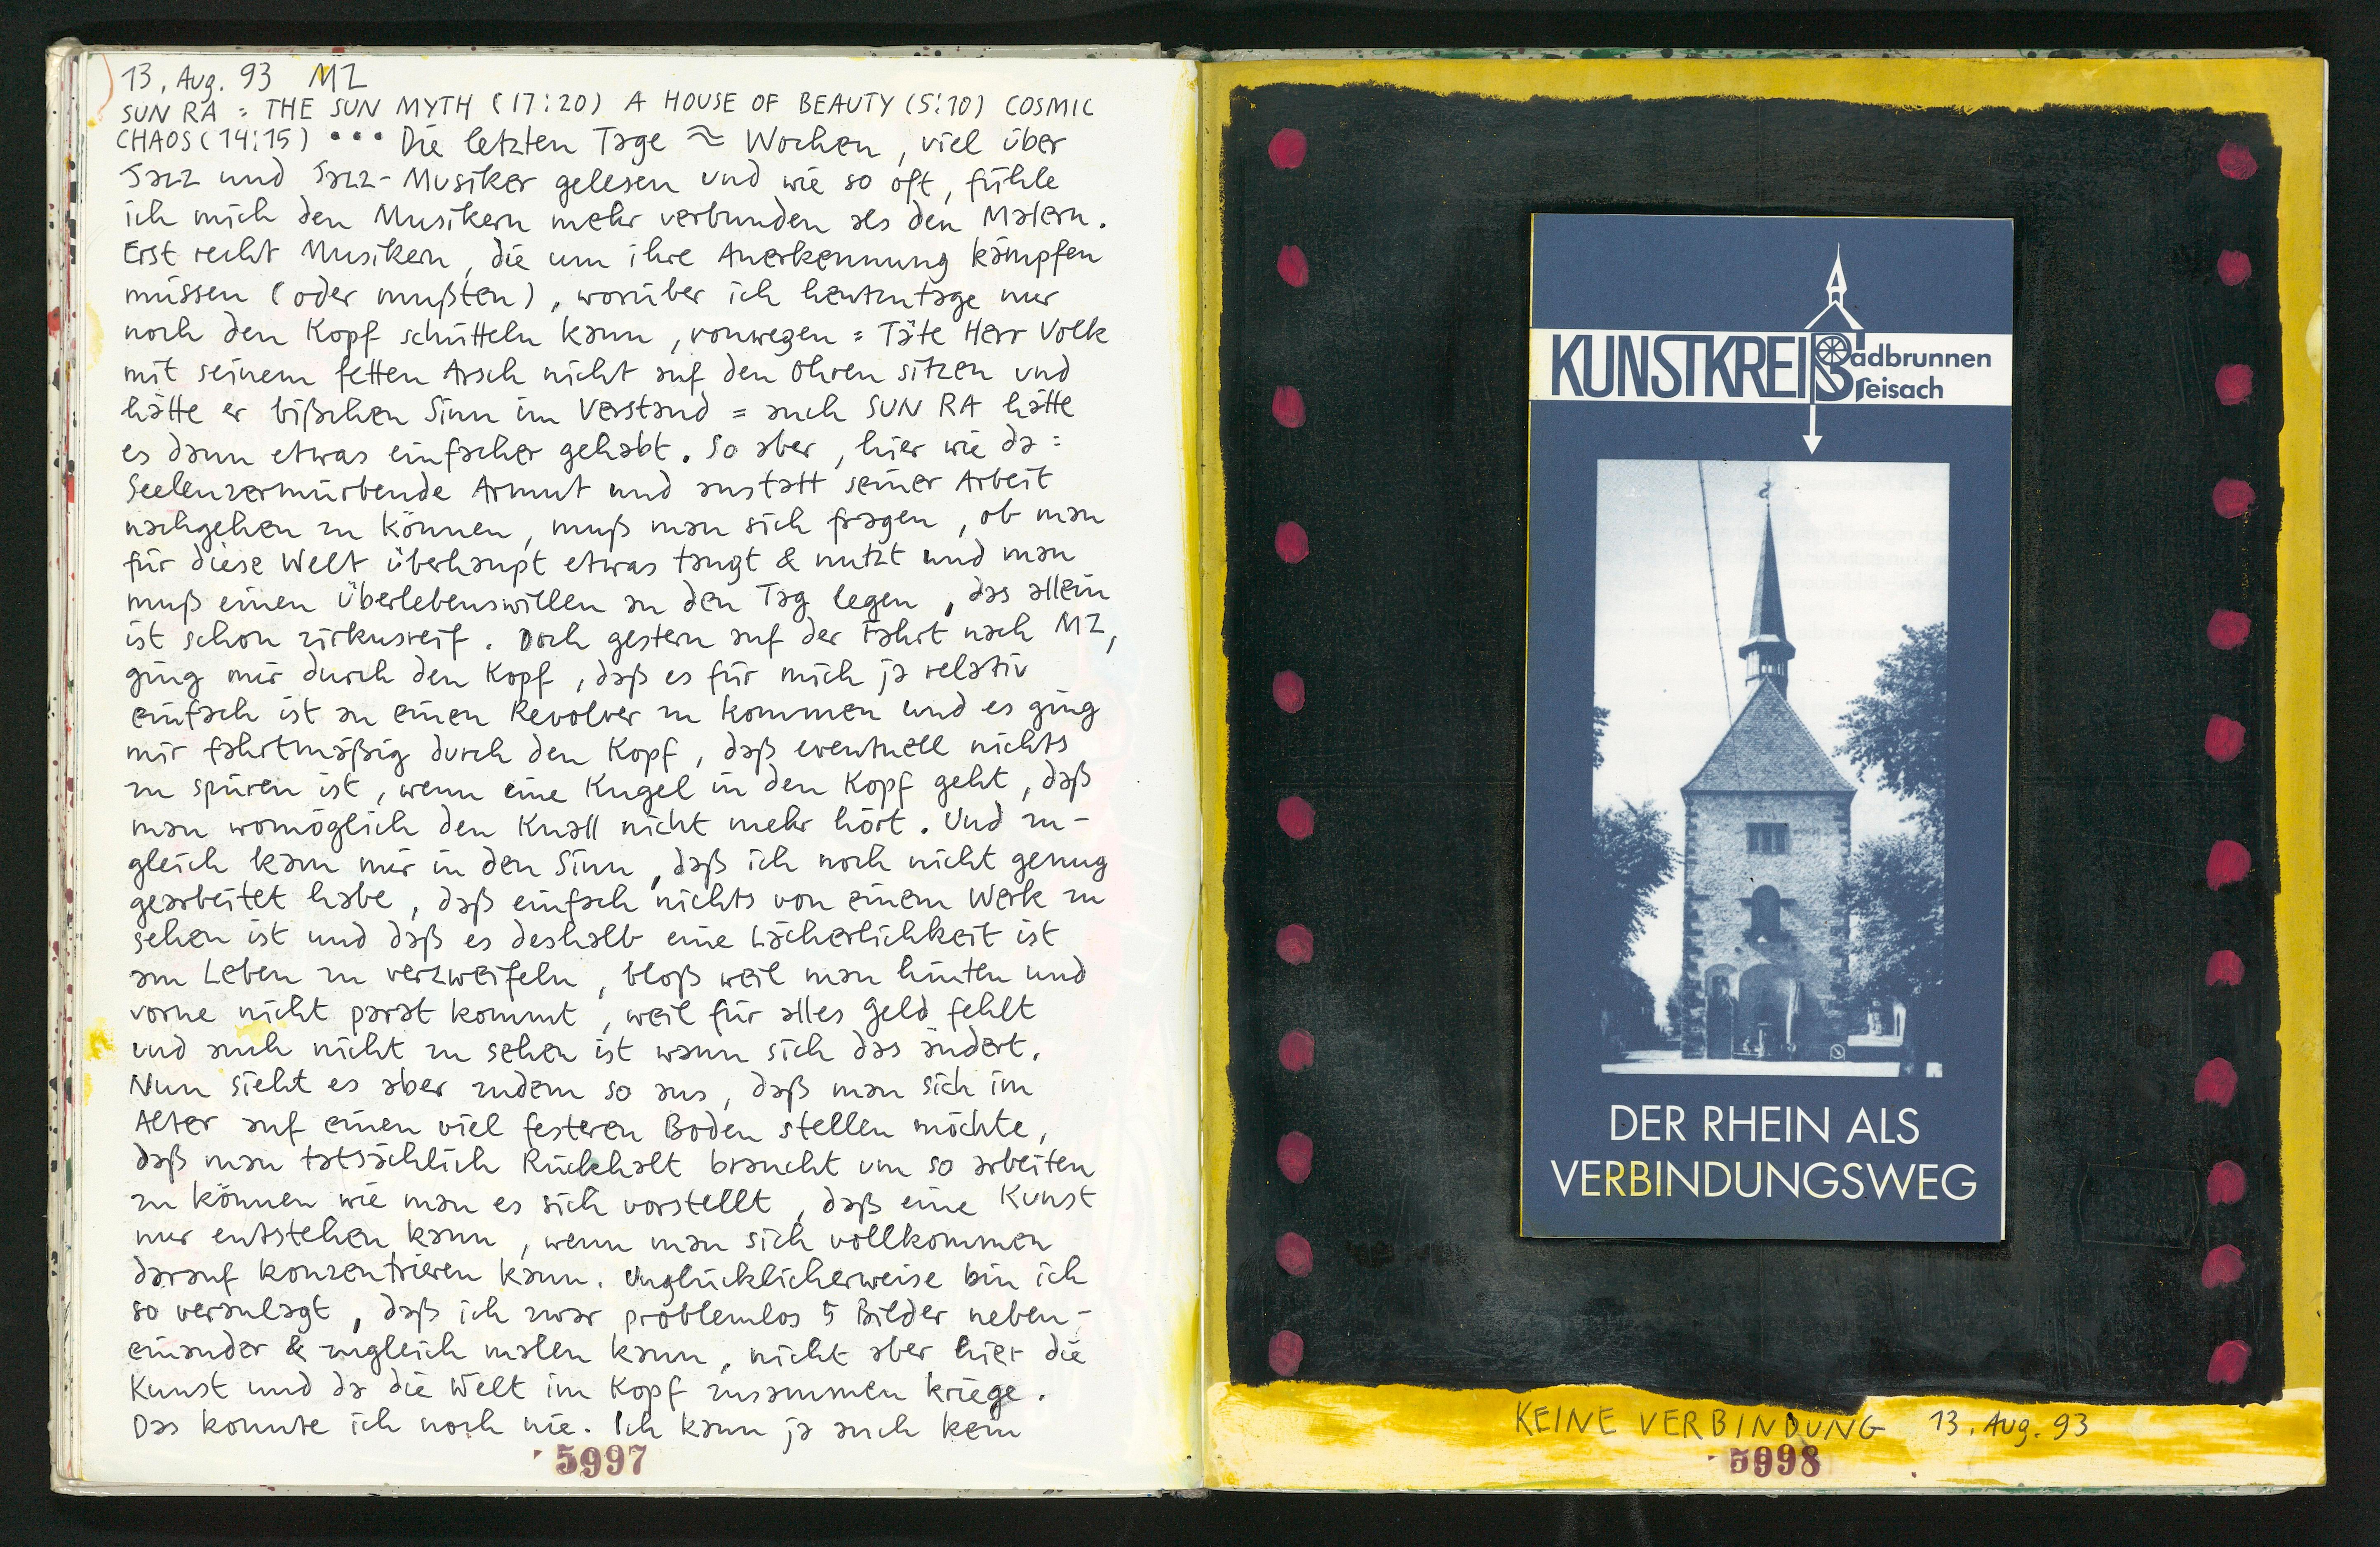 13. Aug. 93 MZ
SUN RA = THE SUN MYTH (17:20) A HOUSE OF BEAUTY (5:10) COSMIC
CHAOS (14:15) ••• Die letzten Tage ≈ Wochen, viel über
Jazz und Jazz-Musiker gelesen und wie so oft, fühle
ich mich den Musikern mehr verbunden als den Malern.
Erst recht Musikern, die um ihre Anerkennung kämpfen
müssen (oder mußten), worüber ich heutzutage nur
noch den Kopf schütteln kann, vonwegen = Täte Herr Volk
mit seinem fetten Arsch nicht auf den Ohren sitzen und
hätte er bißchen Sinn im Verstand = auch SUN RA hätte
es dann etwas einfacher gehabt. So aber, hier wie da =
Seelenzermürbende Armut und anstatt seiner Arbeit
nachgehen zu können, muß man sich fragen, ob man
für diese Welt überhaupt etwas taugt & nutzt und man
muß einen Überlebenswillen an den Tag legen, das allein
ist schon zirkusreif. Doch gestern auf der Fahrt nach MZ,
ging mir durch den Kopf, daß es für mich ja relativ
einfach ist an einen Revolver zu kommen und es ging
mir fahrtmäßig durch den Kopf, daß eventuell nichts
zu spüren ist, wenn eine Kugel in den Kopf geht, daß
man womöglich den Knall nicht mehr hört. Und zu-
gleich kam mir in den Sinn, daß ich noch nicht genug
gearbeitet habe, daß einfach nichts von einem Werk zu
sehen ist und daß es deshalb eine Lächerlichkeit ist
am Leben zu verzweifeln, bloß weil man hinten und
vorne nicht parat kommt, weil für alles Geld fehlt
und auch nicht zu sehen ist wann sich das ändert.
Nun sieht es aber zudem so aus, daß man sich im
Alter auf einen viel festeren Boden stellen möchte,
daß man tatsächlich Rückhalt braucht um so arbeiten
zu können wie man es sich vorstellt, daß eine Kunst
nur entstehen kann, wenn man sich vollkommen
darauf konzentrieren kann. Unglücklicherweise bin ich
so veranlagt, daß ich zwar problemlos 5 Bilder neben-
einander & zugleich malen kann, nicht aber hier die
Kunst und da die Welt im Kopf zusammen kriege.
Das konnte ich noch nie. Ich kann ja auch kein
5997
KUNSTKREIS
Radbrunnen
Breisach
DER RHEIN ALS
VERBINDUNGSWEG
KEINE VERBINDUNG 13. Aug. 93
5998